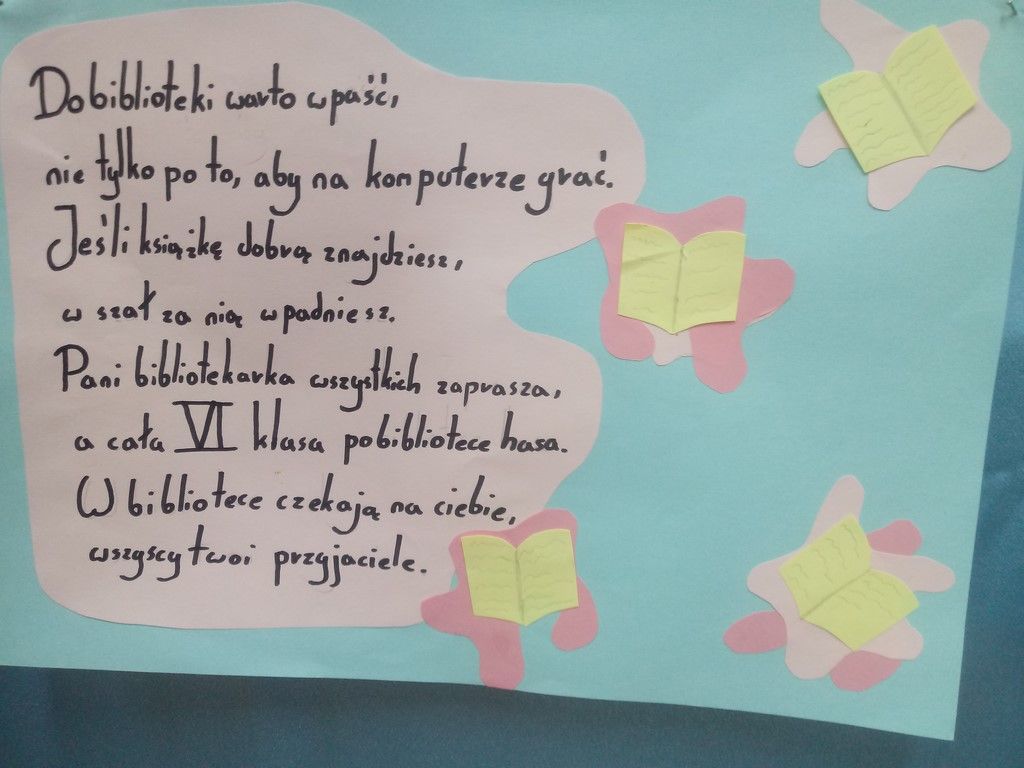 Do biblioteki warto wpaść,
nie tylko po to, aby na komputerze grać.
Jeśli książkę dobrą znajdziesz,
w szał za nią wpadniesz.
Pani bibliotekarka wszystkich zaprasza,
a cała VI klasa po bibliotece hasa.
W bibliotece czekają na ciebie,
wszyscy twoi przyjaciele.